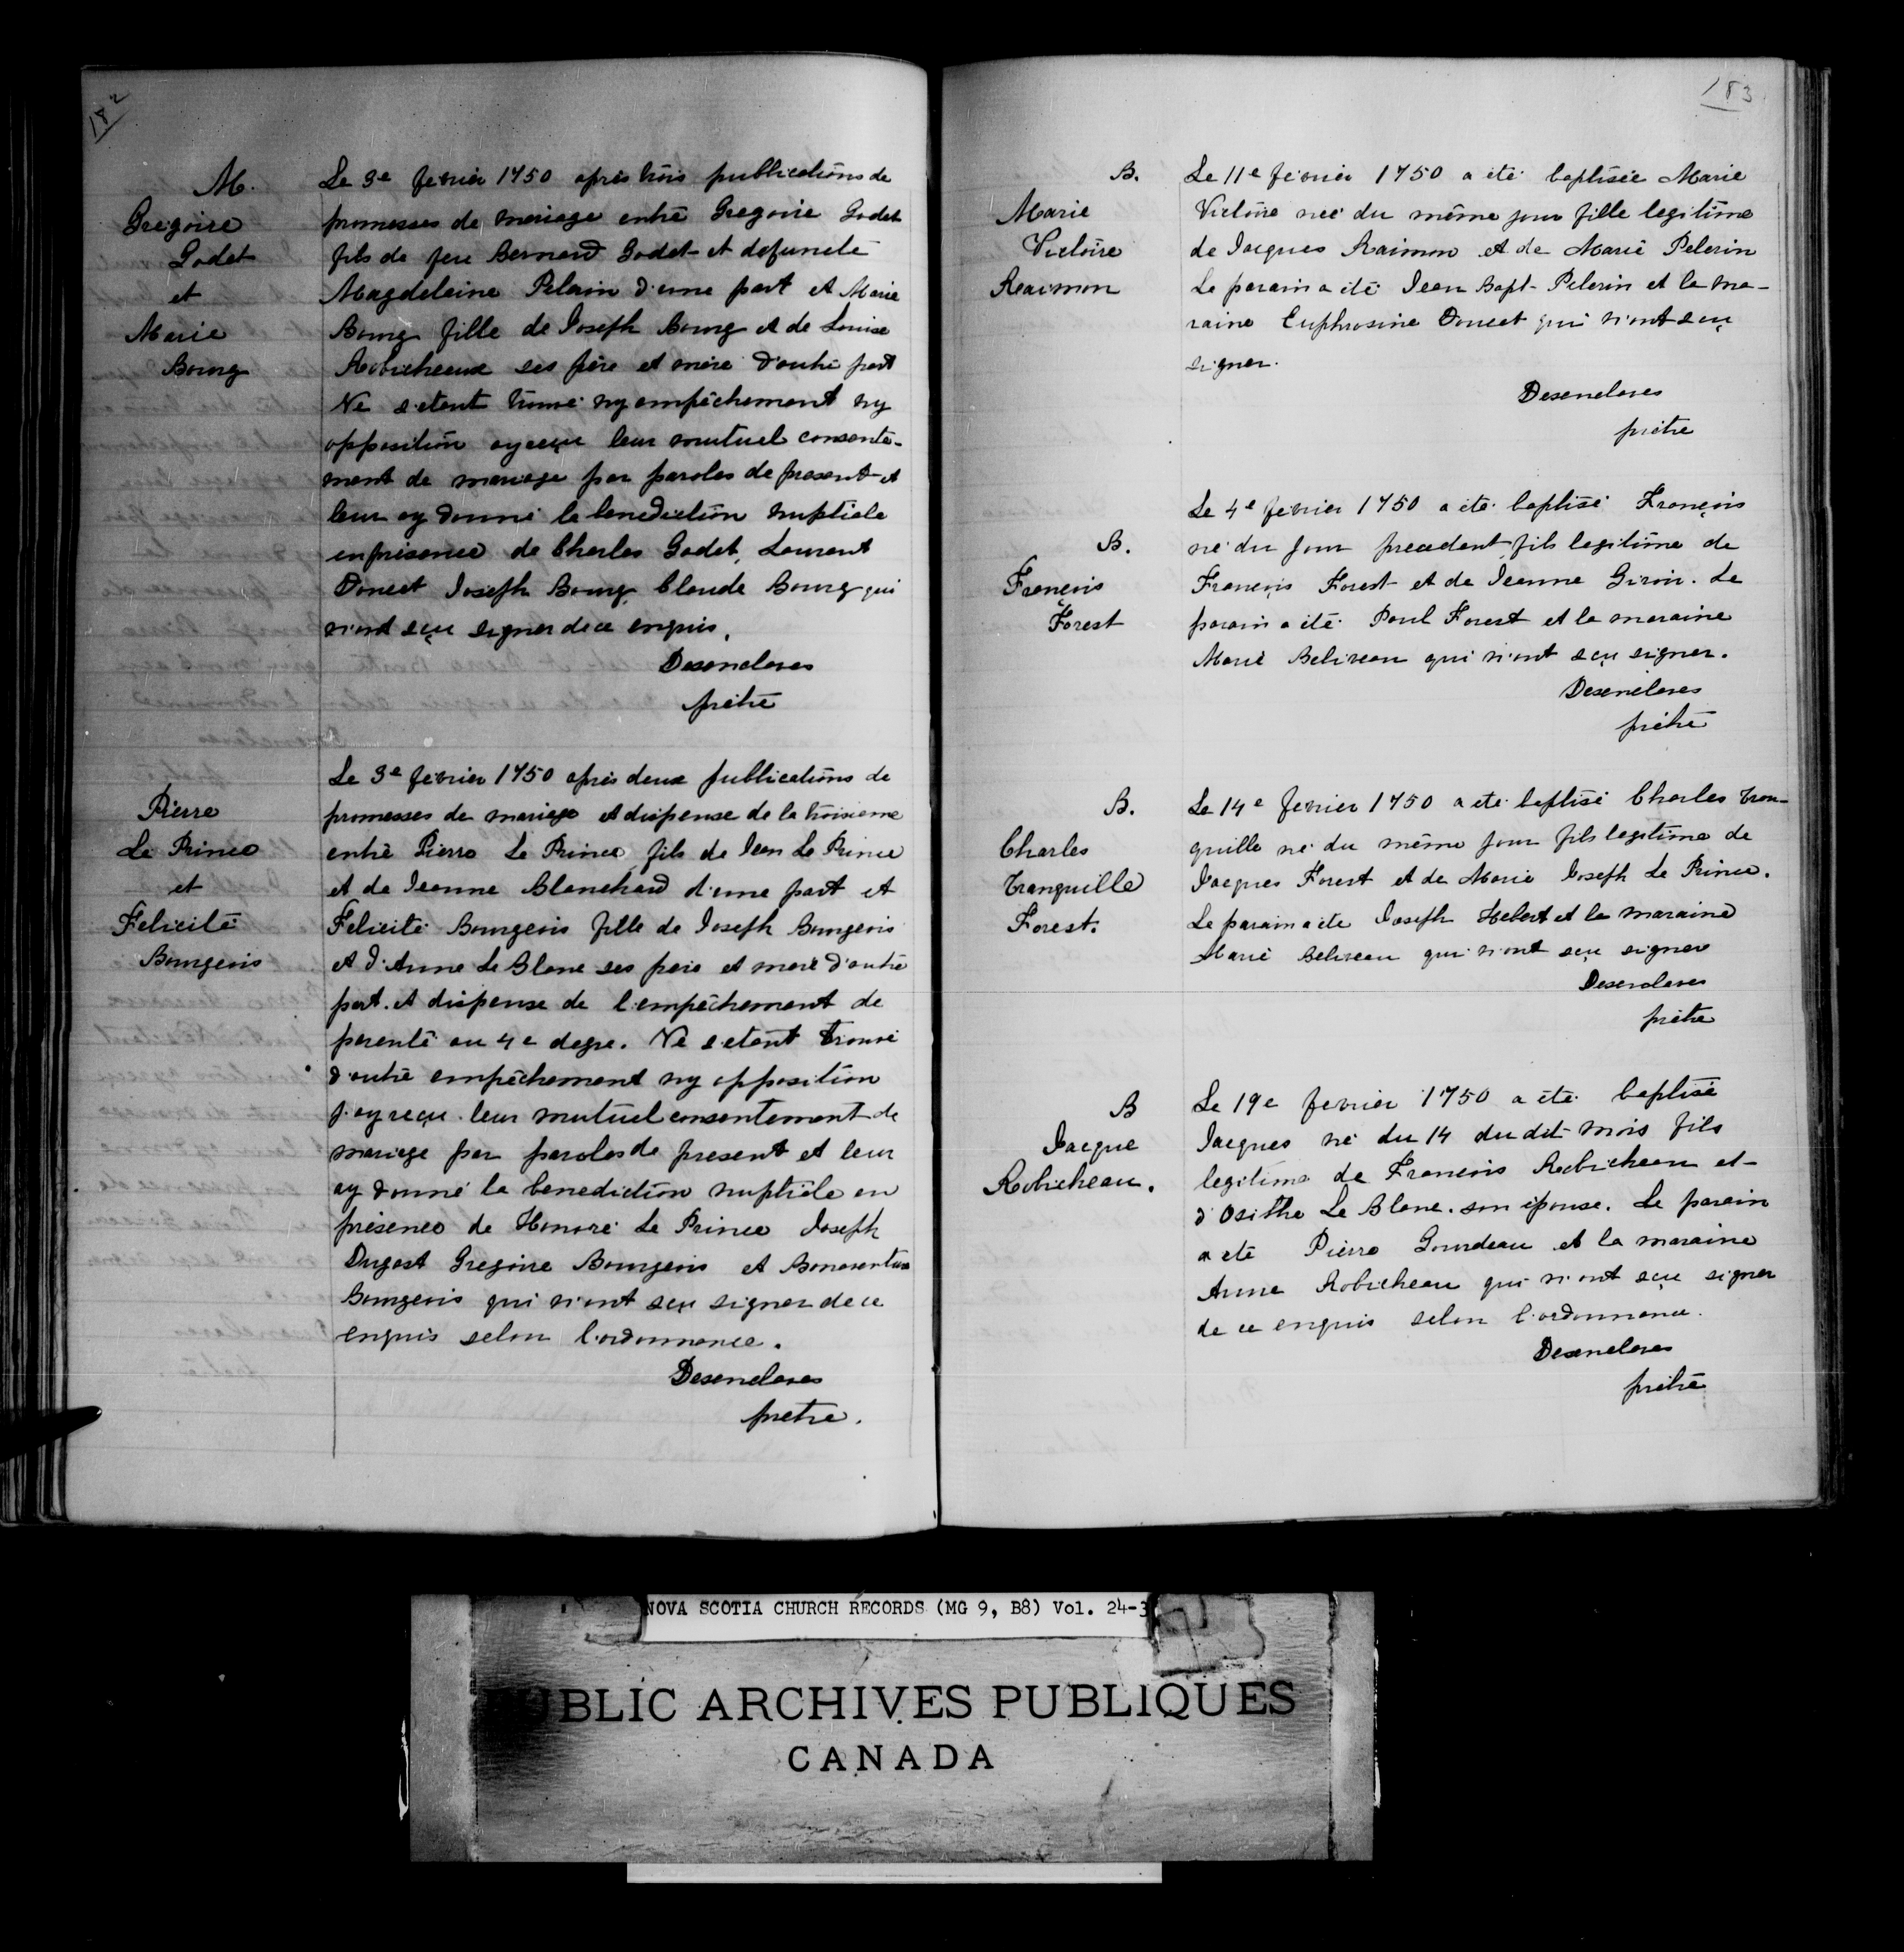 182
M.
Gregoire
Godet
et
Marie
Bourg
Le 3e fevrier 1750 après trois publications de
promesses de mariage entre Gregoire Godet
fils de feu Bernard Godet et defuncte
Magdeleine Pelrain d'une part et Marie
Bourg fille de Joseph Bourg et de Louise
Robicheaux ses père et mère d'autre part
Ne s'etant trouvé ny empêchement ny
opposition ay reçu leur mutuel consente-
ment de mariage par paroles de present et
leur ay donné la benediction nuptiale
en présence de Charles Godet, Laurent
Doucet Joseph Bourg, Claude Bourg qui
n'ont sçu signer de ce enquis.
Desenclaves
prêtre
Pierre
Le Prince
et
Felicité
Bourgeois
Le 3e fevrier 1750 après deux publications de
promesses de mariage et dispense de la troisieme
entre Pierre Le Prince fils de Jean Le Prince
et de Jeanne Blanchard d'une part et
Felicité Bourgeois fille de Joseph Bourgeois
et d'Anne Le Blanc ses pere et mere d'autre
part. et dispense de l'empêchement de
parenté au 4e degre. Ne s'etant trouvé
d'autre empêchement ny opposition
j'ay reçu leur mutuel consentement de
mariage par paroles de present et leur
ay donné la benediction nuptiale en
présence de Honoré Le Prince Joseph
Dugast Gregoire Bourgeois et Bonaventure
Bourgeois qui n'ont sçu signer de ce
enquis selon l'ordonnance.
Desenclaves
pretre.
183
B.
Marie
Victoire
Raimon
Le 11e fevrier 1750 a été baptisée Marie
Victoire neé du même jour fille legitime
de Jacques Raimon et de Marie Pelerin
Le parain a été Jean Bapt. Pelerin et la ma-
raine Euphrosine Doucet qui n'ont sçu
signer.
Desenclaves
prêtre
B.
François
Forest
Le 4e fevrier 1750 a été baptisé François
né du jour precedent fils legitime de
François Forest et de Jeanne Giroir. Le
parain a été Paul Forest et la maraine
Marie Beliveau qui n'ont sçu signer.
Desenclaves
prêtre
B.
Charles
Tranquille
Forest.
Le 14e fevrier 1750 a été baptisé Charles Tran-
quille né du même jour fils legitime de
Jacques Forest et de Marie Joseph Le Prince.
Le parain a été Joseph Hebert et la maraine
Marie Beliveau qui n'ont sçu signer
Desenclaves
prêtre
B
Jacque
Robicheau.
Le 19e fevrier 1750 a été baptisé
Jacques né du 14 du dit mois fils
legitime de François Robicheau et
d'Osithe Le Blanc son épouse. Le parain
a été Pierre Gourdeau et la maraine
Anne Robicheau qui n'ont sçu signer
de ce enquis selon l'ordonnance.
Desenclaves
prêtre
NOVA SCOTIA CHURCH RECORDS (MG 9, B8) Vol. 24-3
PUBLIC ARCHIVES PUBLIQUES
CANADA